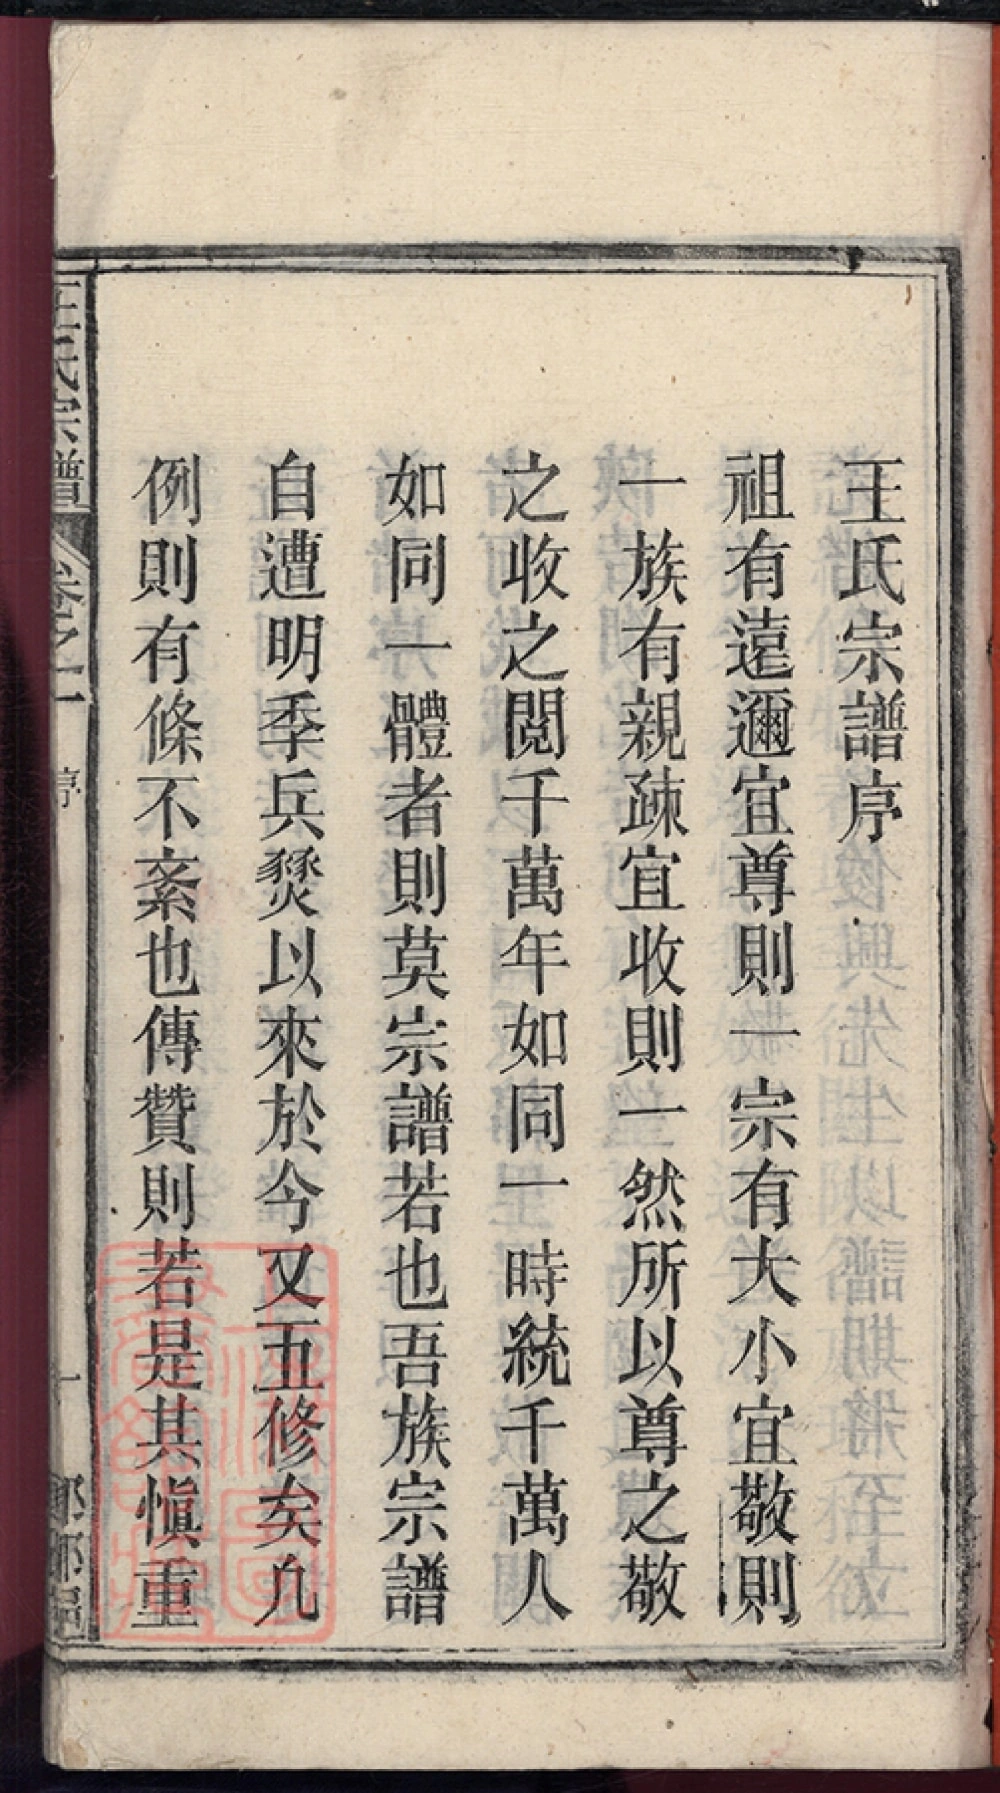 王氏宗譜序
祖有遠邇宜尊則一宗有大小宜敬則
一族有親疎宜收則一然所以尊之敬
之收之閱千萬年如同一時統千萬人
如同一體者則莫宗譜若也吾族宗譜
自遭明季兵燹以來於今又五修矣凢
例則有條不紊也傳贊則若是其愼重
王氏宗譜 卷之一 序 一